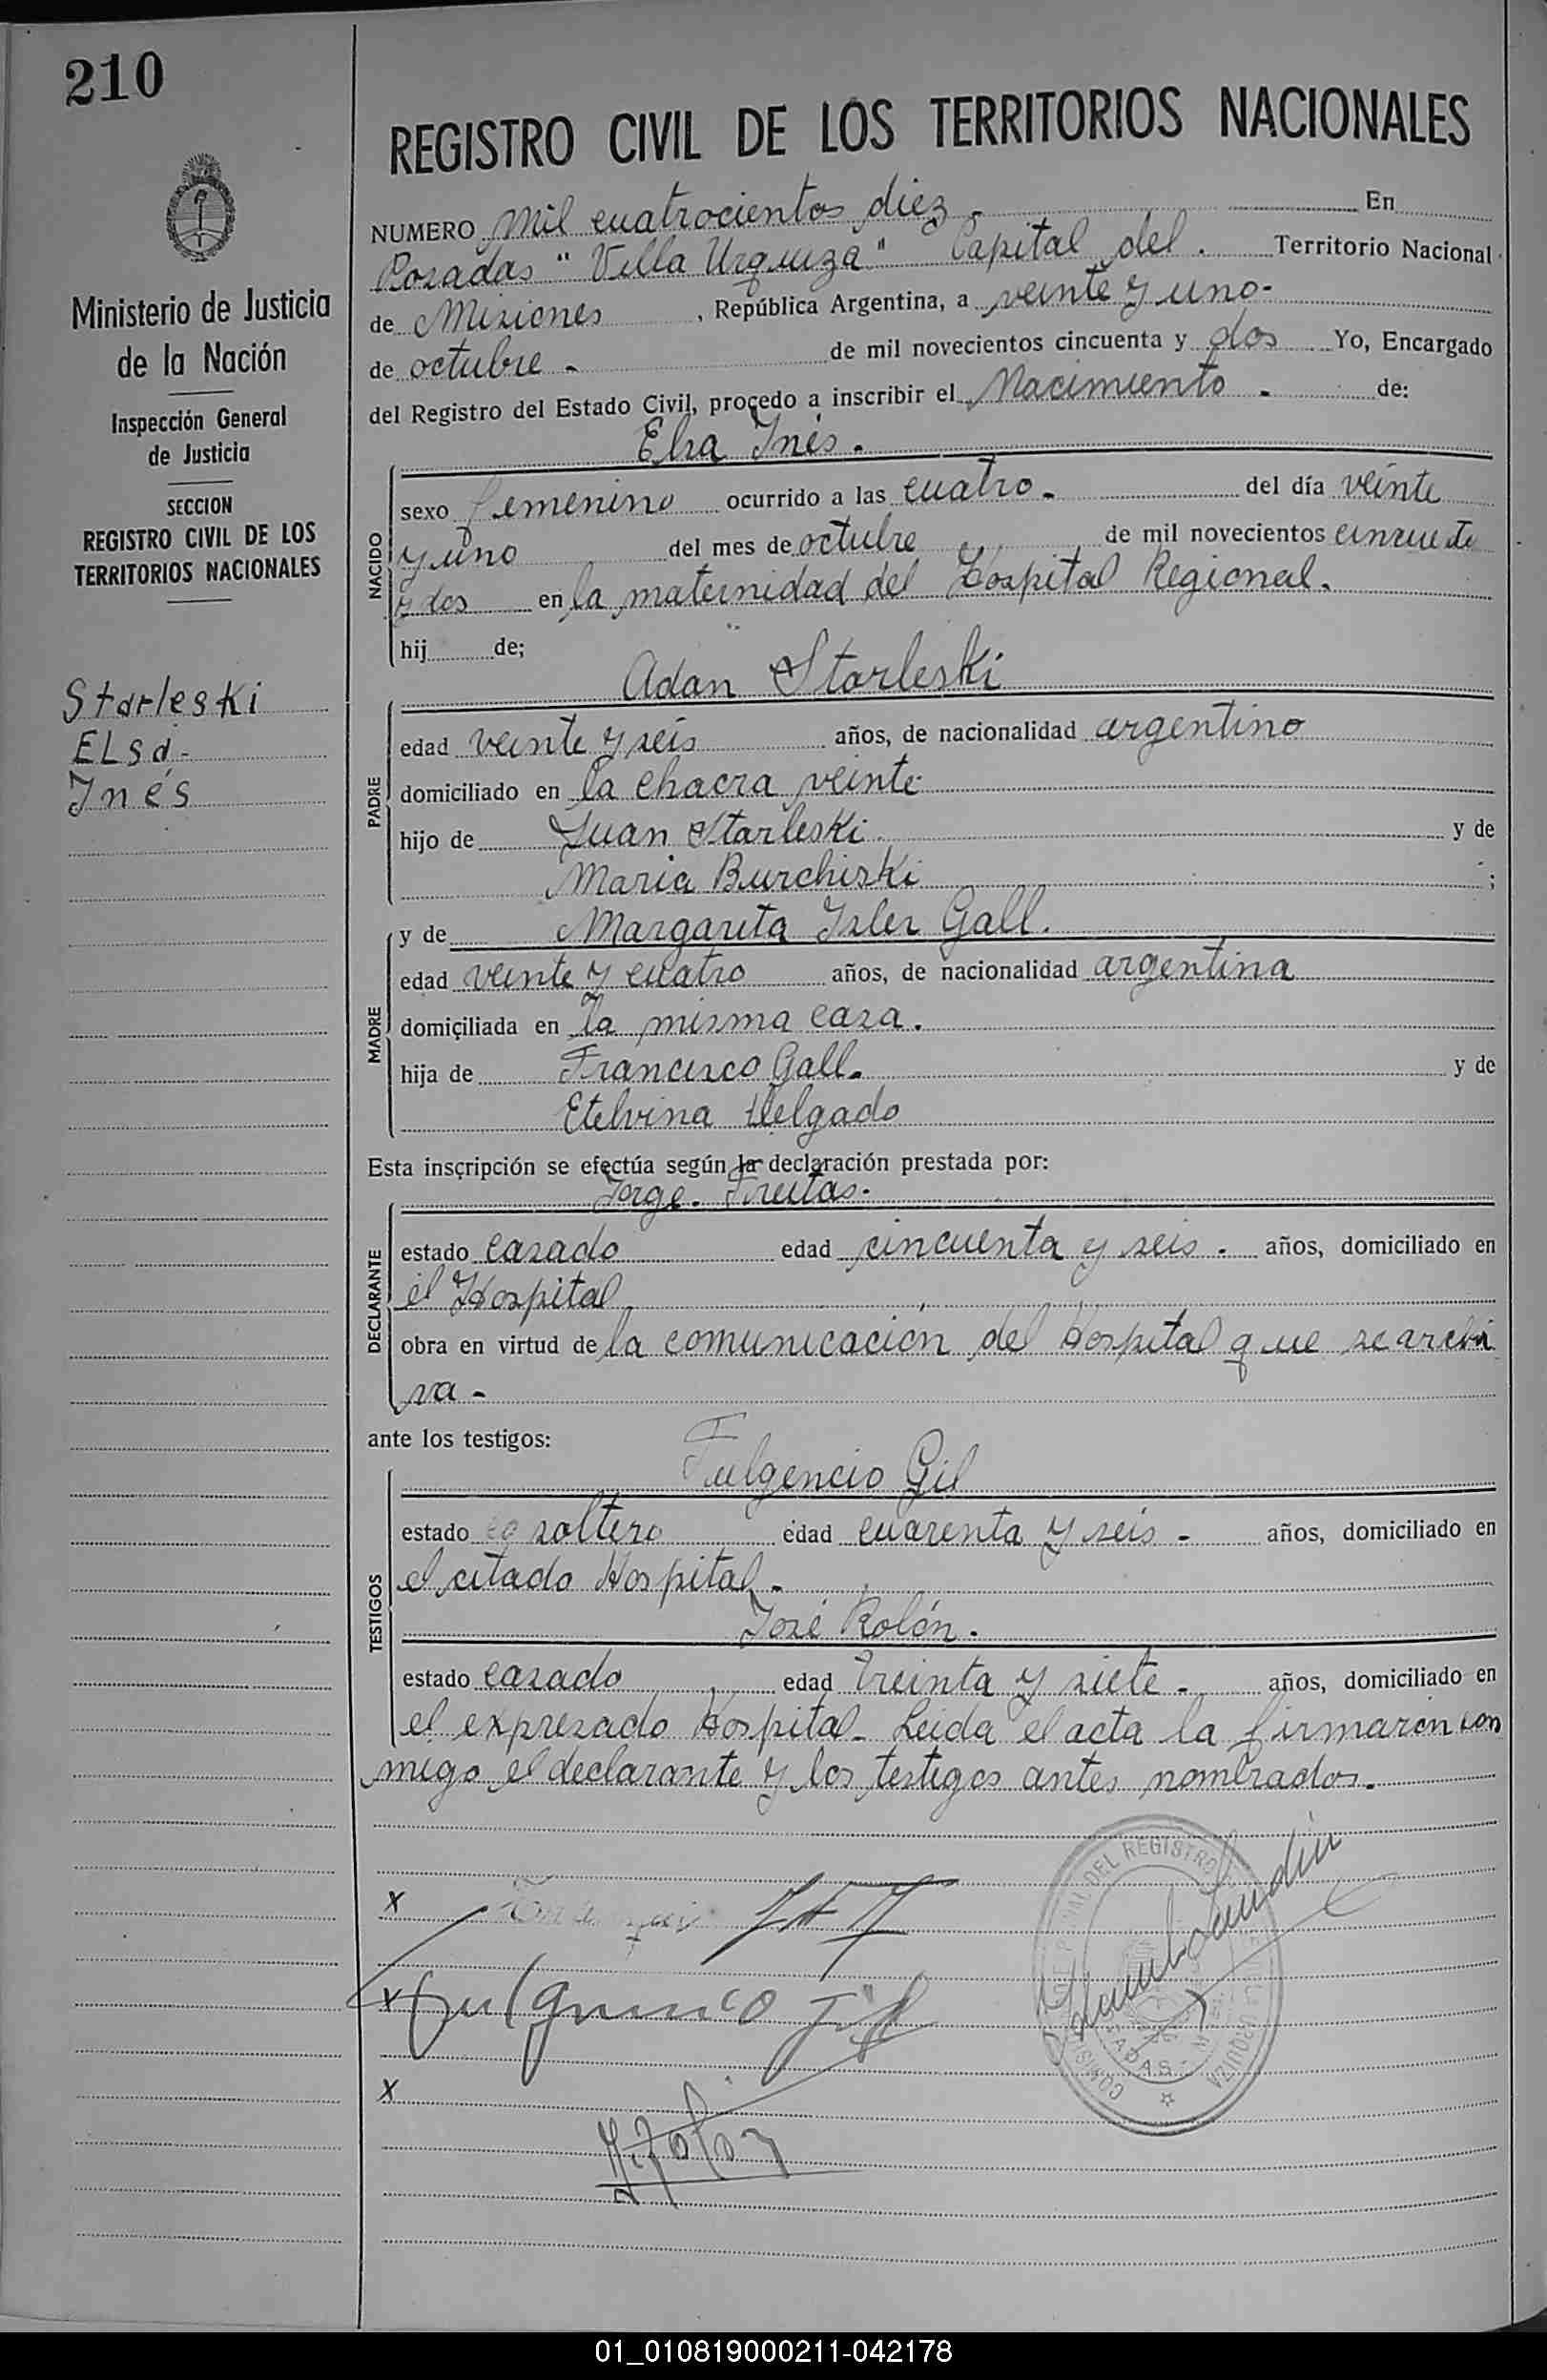 210
REGISTRO CIVIL DE LOS TERRITORIOS NACIONALES
Ministerio de Justicia
de la Nación
Inspección General
de Justicia
SECCION
REGISTRO CIVIL DE LOS
TERRITORIOS NACIONALES
Starleski
ELsa
Inés
NUMERO Mil cuatrocientos diez. En
Posadas "Villa Urquiza" Capital del. Territorio Nacional
de Misiones, República Argentina, a veinte y uno-
de octubre - de mil novecientos cincuenta y dos Yo, Encargado
del Registro del Estado Civil, procedo a inscribir el Nacimiento. de:
Elsa Inés.
NACIDO
sexo femenino ocurrido a las cuatro. del día veinte
y uno del mes de octubre de mil novecientos cincuenta
y dos en la maternidad del Hospital Regional.
hij de;
Adan Starleski
PADRE
edad veinte y seis años, de nacionalidad argentino
domiciliado en la chacra veinte
hijo de Juan Starleski. y de
Maria Burchiski ;
y de Margarita Isler Gall.
MADRE
edad veinte y cuatro años, de nacionalidad argentina
domiciliada en la misma casa.
hija de Francisco Gall. y de
Etelvina Delgado
Esta inscripción se efectúa según la declaración prestada por:
Jorge. Freitas.
DECLARANTE
estado casado edad cincuenta y seis. años, domiciliado en
el Hospital
obra en virtud de la comunicación del Hospital que se archi
va -
ante los testigos:
Fulgencio Gil
TESTIGOS
estado soltero edad cuarenta y seis - años, domiciliado en
el citado Hospital.
José Rolón.
estado casado edad treinta y siete - años, domiciliado en
el expresado Hospital. Leida el acta la firmaron con
migo el declarante y los testigos antes nombrados.
X
X Fulgencio Gil
X
DEL REGISTRO
URQUIZA
01_010819000211-042178